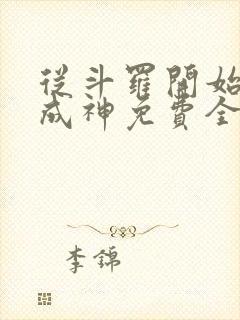 從斗羅開始
成神免費全
李錦